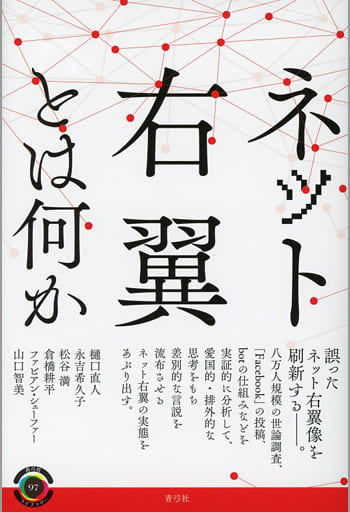 ネット
右翼
とは何か
誤った
ネット右翼像を
刷新する――。
八万人規模の世論調査、
「Facebook」の投稿、
botの仕組みなどを
実証的に分析して、
愛国的・排外的な
思考をもち
差別的な言説を
流布させる
ネット右翼の実態を
あぶり出す。
樋口直人
永吉希久子
松谷 満
倉橋耕平
ファビアン・シェーファー
山口智美
青弓社
ライブラリー
97
青弓社